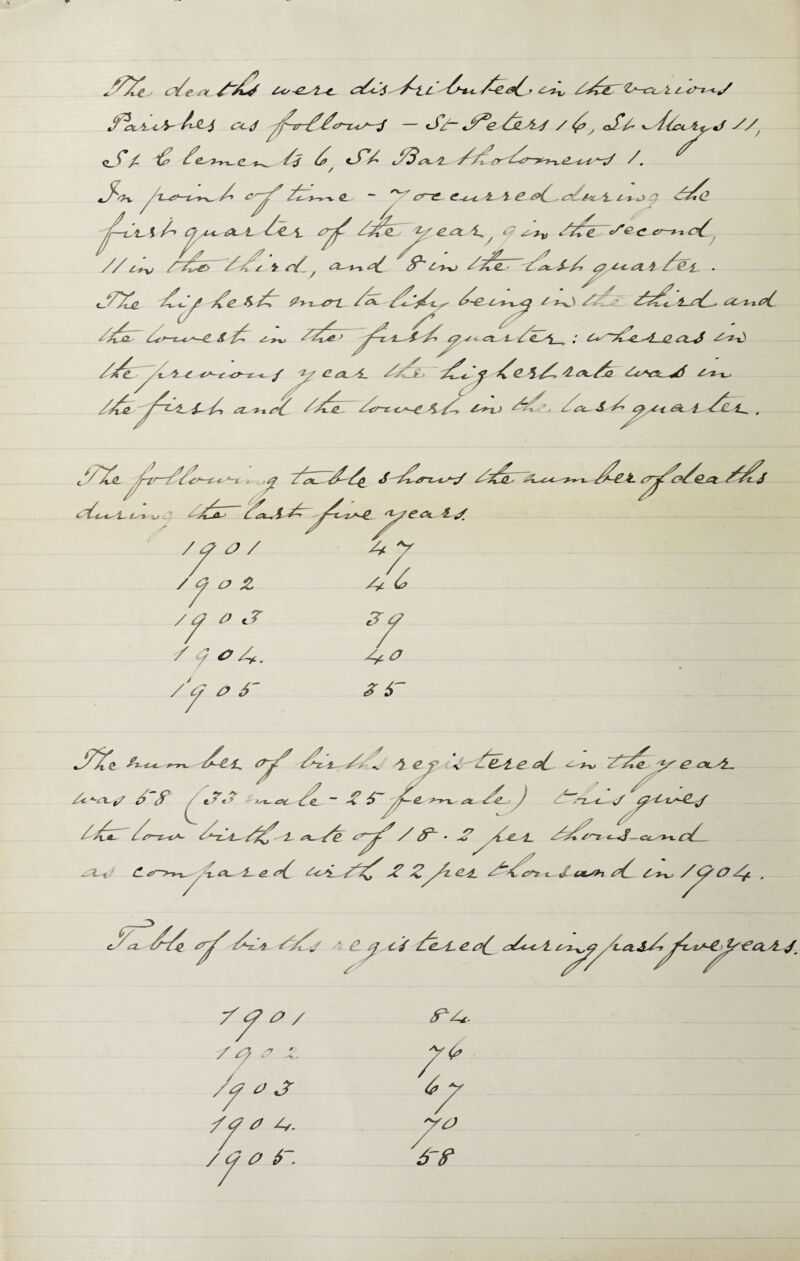 The deaths were distributed in the various
Parishes as follows — St Peters 16, St Marys 11,
St Clements 6, St Bartholomews 1.
In point of time - 7 occurred during the
first quarter of the year, 9 in the second,
11 in the third, and 8 in the last quarter.
The highest mortality being in the third and
the lowest in the first quarter; whereas in
the previous year the highest rate was in
the first and the lowest in the last quarter.
The following table shows the number of deaths
during the last five years.
1901 47
1902 46
1903 39
1904. 40
1905 35
The number of births registered in the year
was 58 (33 male - 25 female) This gives
the low birth rate of 18.2 per thousand
as compared with 22 per thousand in 1904.
Table of births registered during past five years.
1901 84.
1902. 76
1903 67
1904. 70
1905. 58